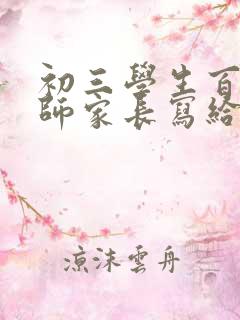 初三學生百
師家長寫給
涼沫雲舟